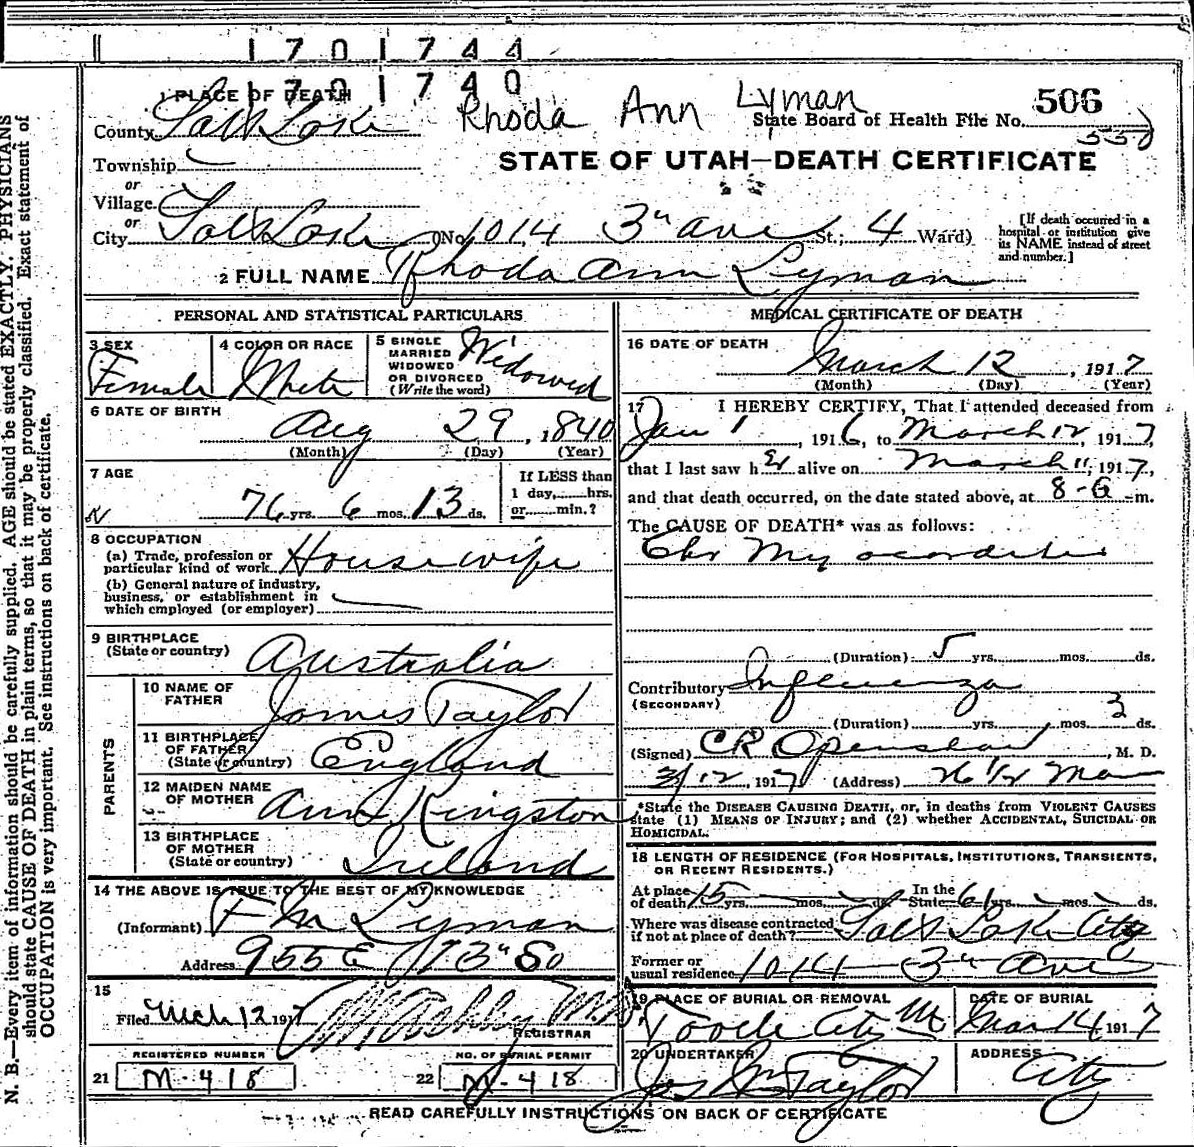 1701744
1701740
1 PLACE OF DEATH
Rhoda Ann Lyman
State Board of Health File No. 506
County Salt Lake
550
Township
STATE OF UTAH—DEATH CERTIFICATE
or
Village
or
City Salt Lake (No. 1014 3rd ave St.; 4 Ward)
[If death occurred in a hospital or institution give its NAME instead of street and number.]
2 FULL NAME Rhoda Ann Lyman
PERSONAL AND STATISTICAL PARTICULARS
3 SEX
Female
4 COLOR OR RACE
5 SINGLE MARRIED WIDOWED OR DIVORCED (Write the word)
Widowed
6 DATE OF BIRTH
Aug 29, 1840
(Month) (Day) (Year)
7 AGE
76 yrs. 6 mos. 13 ds.
If LESS than 1 day,......hrs. or......min.?
8 OCCUPATION
(a) Trade, profession or particular kind of work Housewife
(b) General nature of industry, business, or establishment in which employed (or employer)
9 BIRTHPLACE
(State or country) Australia
PARENTS
10 NAME OF FATHER James Taylor
11 BIRTHPLACE OF FATHER (State or country) England
12 MAIDEN NAME OF MOTHER Ann Kingston
13 BIRTHPLACE OF MOTHER (State or country) Ireland
14 THE ABOVE IS TRUE TO THE BEST OF MY KNOWLEDGE
(Informant) F M Lyman
Address 955 E 13th So
15
Filed Mch 12 1917
REGISTRAR
REGISTERED NUMBER
21 M-418
NO. OF BURIAL PERMIT
22 M-418
MEDICAL CERTIFICATE OF DEATH
16 DATE OF DEATH
March 12, 1917
(Month) (Day) (Year)
17 I HEREBY CERTIFY, That I attended deceased from
Jan 1, 1916, to March 12, 1917,
that I last saw her alive on March 11, 1917,
and that death occurred, on the date stated above, at 8- m.
The CAUSE OF DEATH* was as follows:
Chr Myocarditis
(Duration) 5 yrs. mos. ds.
Contributory Influenza
(SECONDARY)
(Duration) yrs. mos. 3 ds.
(Signed) C R Openshaw, M. D.
3/12, 1917 (Address) 26 1/2 Main
*State the DISEASE CAUSING DEATH, or, in deaths from VIOLENT CAUSES
state (1) MEANS OF INJURY; and (2) whether ACCIDENTAL, SUICIDAL OR
HOMICIDAL.
18 LENGTH OF RESIDENCE (FOR HOSPITALS, INSTITUTIONS, TRANSIENTS,
OR RECENT RESIDENTS.)
At place of death 15 yrs. mos. ds. In the State 61 yrs. mos. ds.
Where was disease contracted if not at place of death? Salt Lake City
Former or usual residence 1014 3rd Ave
19 PLACE OF BURIAL OR REMOVAL
Tooele City Ut
DATE OF BURIAL
Mar 14, 1917
20 UNDERTAKER
Jos Wm Taylor
ADDRESS
City
READ CAREFULLY INSTRUCTIONS ON BACK OF CERTIFICATE
N. B.—Every item of information should be carefully supplied. AGE should be stated EXACTLY. PHYSICIANS
should state CAUSE OF DEATH in plain terms, so that it may be properly classified. Exact statement of
OCCUPATION is very important. See instructions on back of certificate.